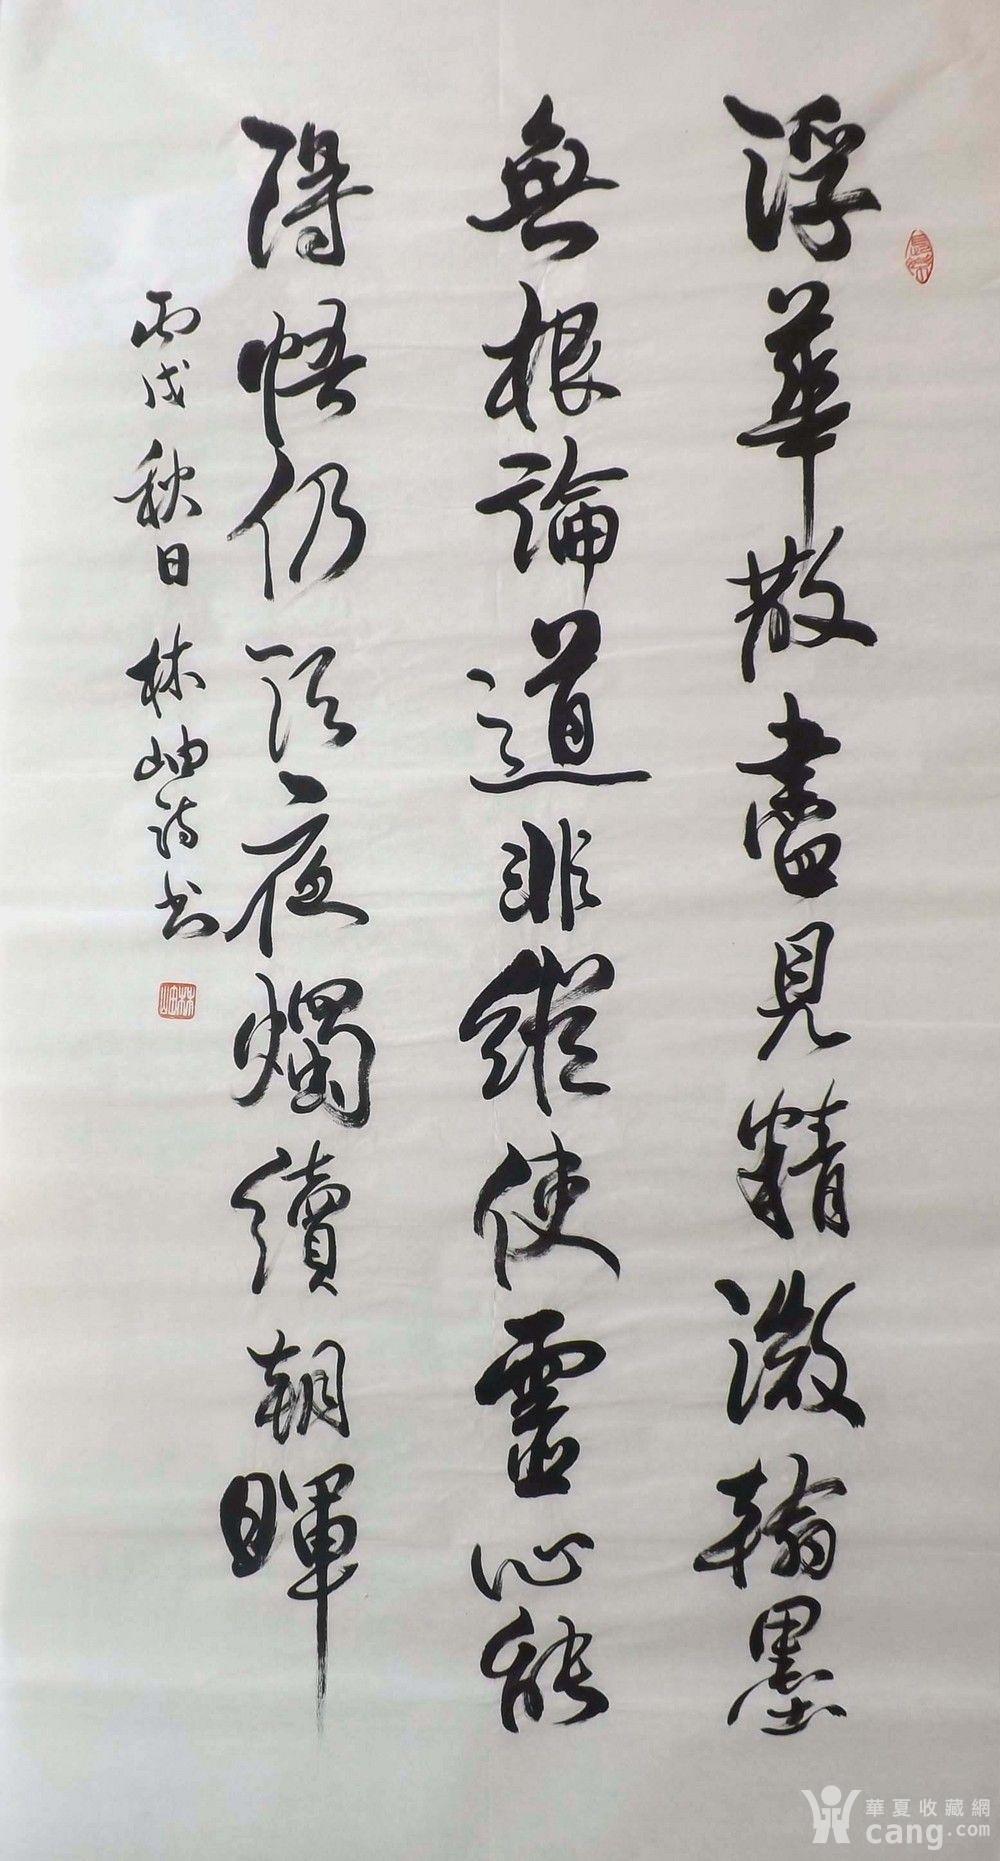 浮華散盡見精微翰墨
無根論道非縱使靈心能
得悟仍須夜燭續朝暉
丙戌秋日林岫詩書
林岫
華夏收藏網
cang.com